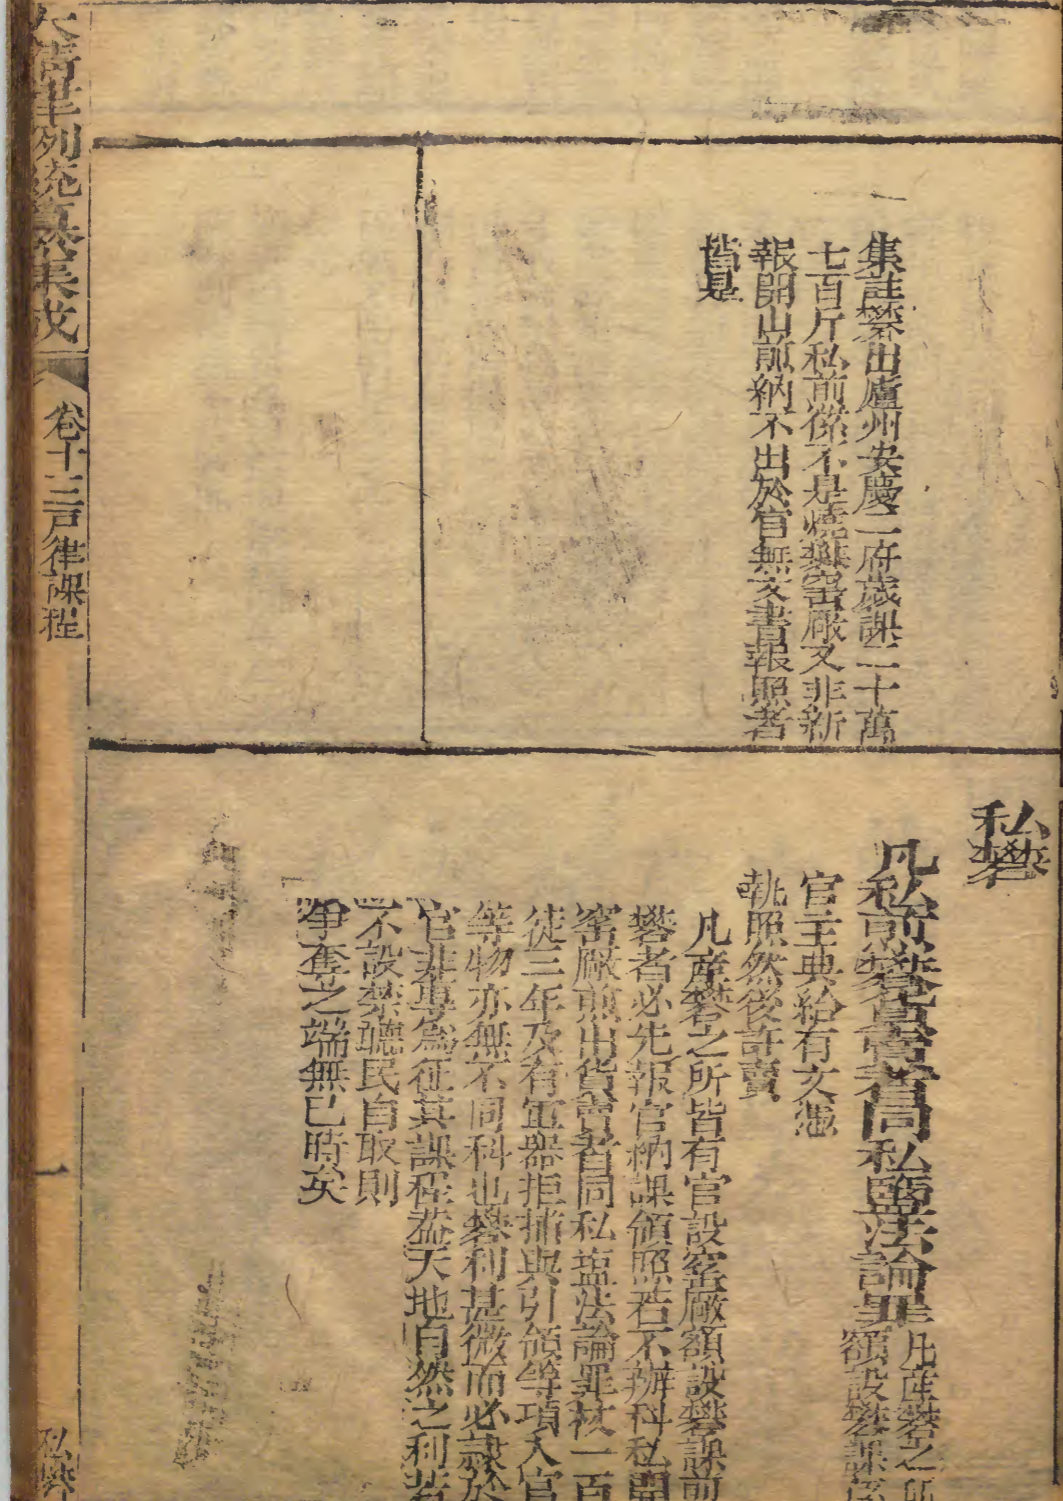 集註礬出廬州安慶二府歲課二十萬
七百斤私煎係不是燒礬窑廠又非新
報開山煎納不出於官無文書報照者
皆是
私礬
凡私煎礬貨賣者同私鹽法論罪凡產礬之所
額設礬課係
官主典給有文憑
執照然後許賣
凡產礬之所皆有官設窑廠額設礬課煎
礬者必先報官納課領照若不辦科私開
窑廠煎出貨賣者同私塩法論罪杖一百
徒三年及有軍器拒捕與引領等項入官
等物亦無不同科也礬利甚微而必隸於
官非專爲征其課程蓋天地自然之利若
不設禁聽民自取則
爭奪之端無已時矣
大清律例統纂集成
卷十三戶律課程
一
私礬